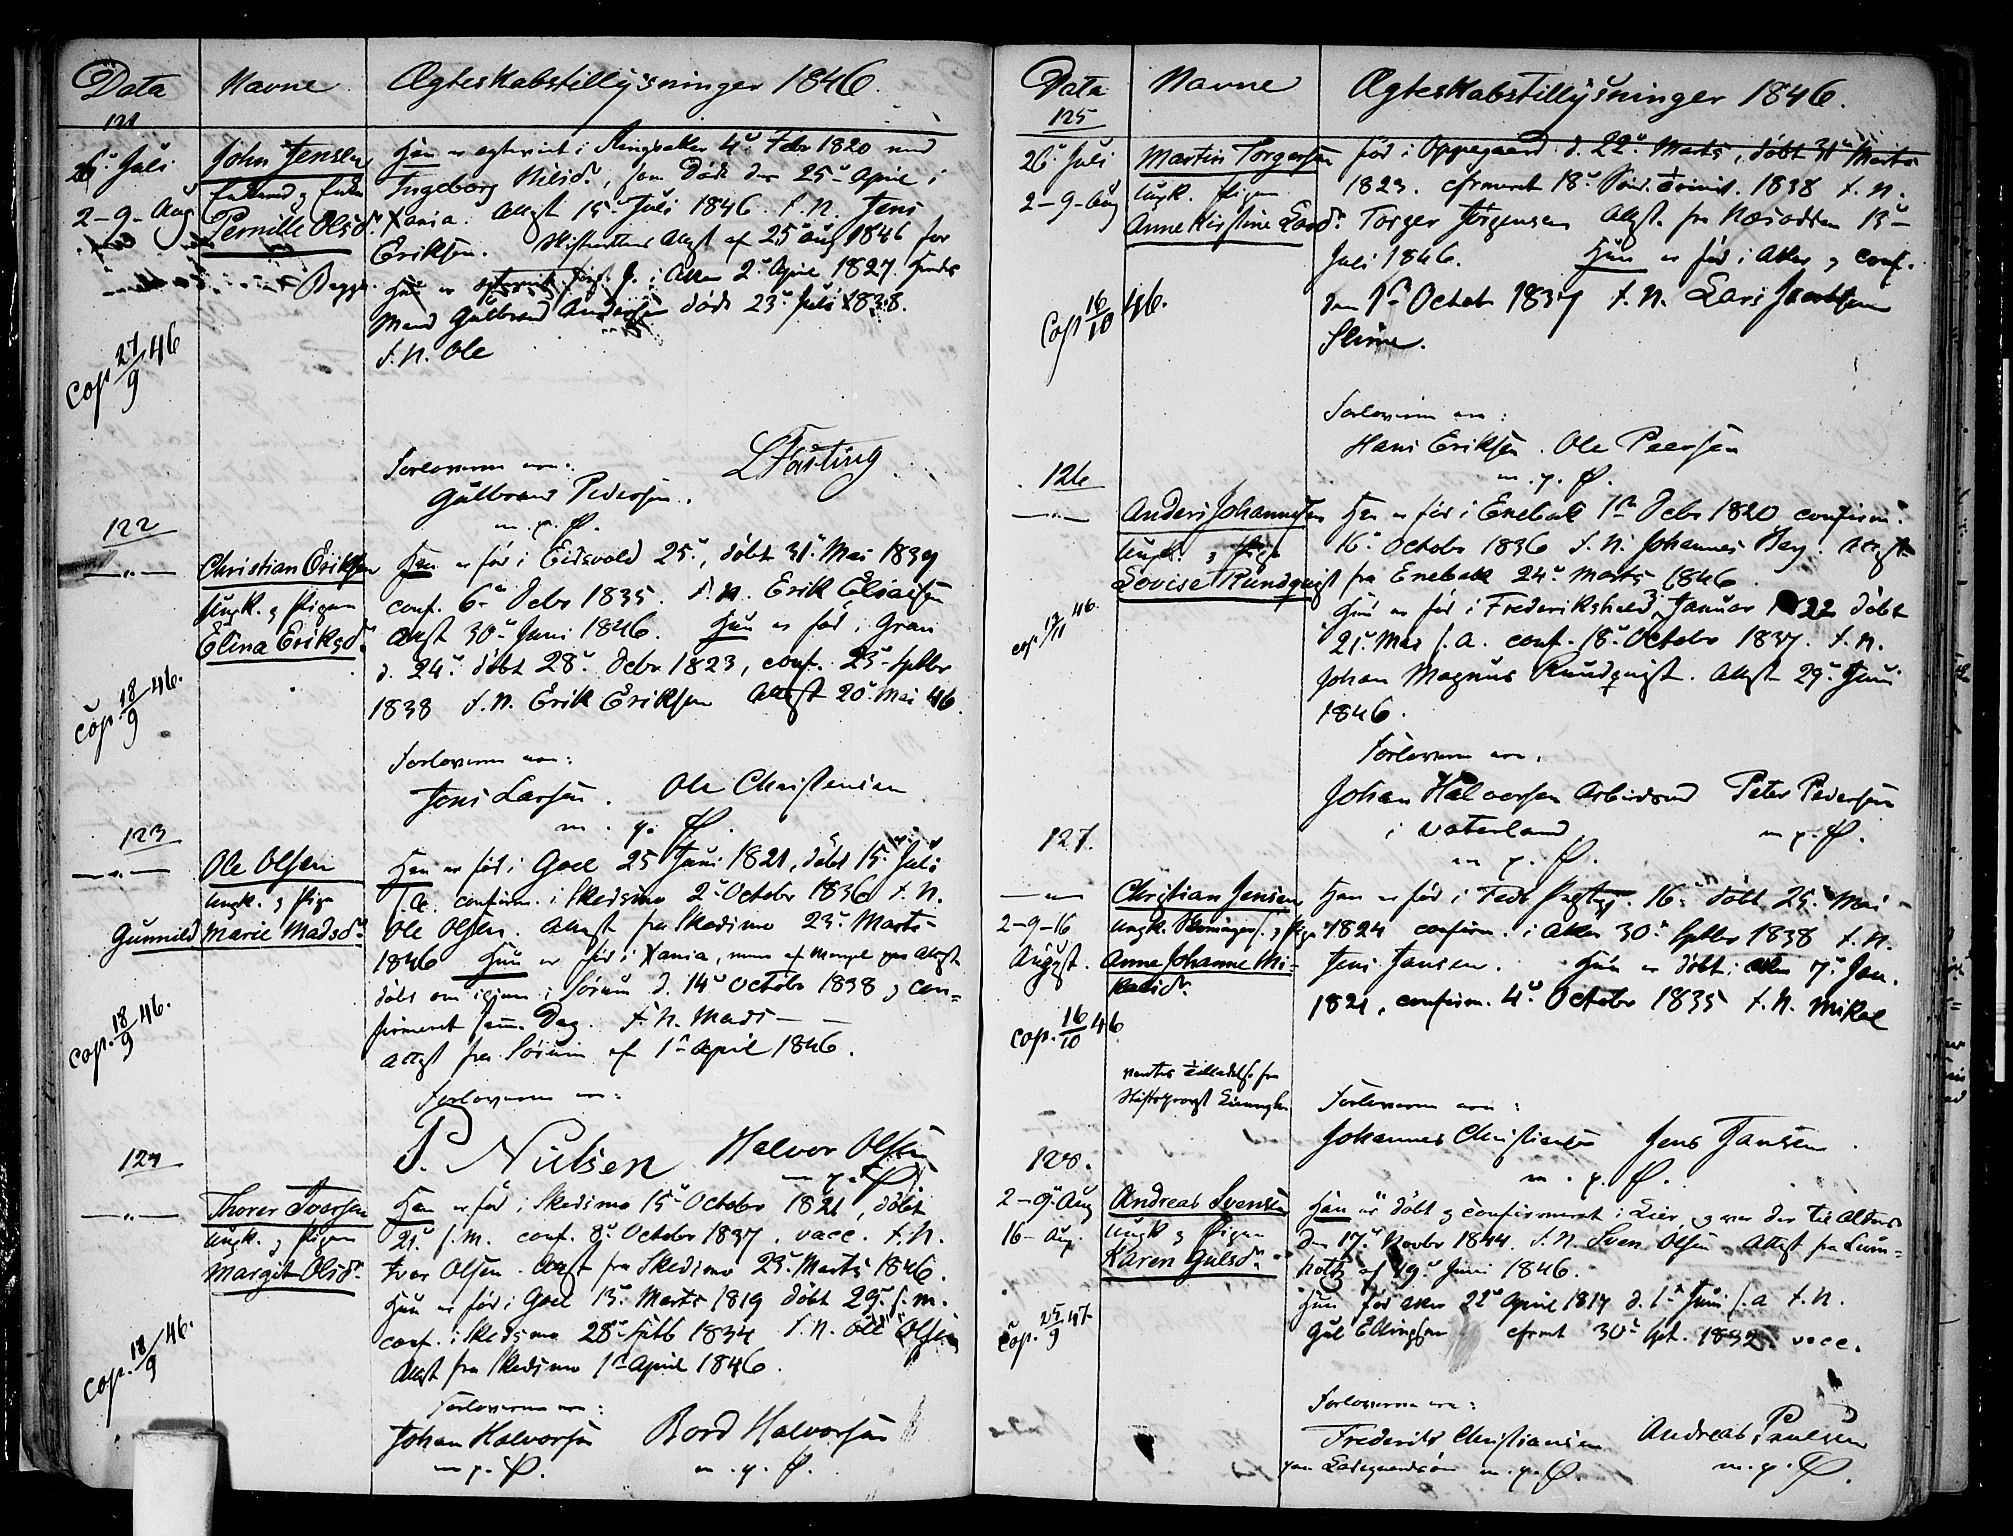 Data Navne Ægteskabstillysninger 1846.
121
26 Juli John Jensen Han er egteviet i Ringsaker 4de Febr 1820 med
Enkemd og Enken Ingeborg Nilsd., som døde den 25de April i
2-9-Aug Pernille Olsd. Xania. Attest 15de Juli 1846. S.N. Jens
Eriksen. Attest af 25 Aug 1846 for
Begge Hun er i Aker 2de April 1827. Hendes
Mand Gulbrand Andersen døde 23de Juli 1838.
S.N. Ole
Cop 27/9 46
Forloverne ere: LFasting
Gulbrand Pedersen.
m. p. P.
122
—"— Christian Eriksen Han er fød i Eidsvold 25de, døbt 31de Mai
Ungk. og Pigen conf. 6te Debr 1835. S.N. Erik Eliassen
Elina Eriksd. Attest 30de Juni 1846. Hun er fød i Gran
d. 24de døbt 28de Debr 1823, conf. 23de Septbr
1838 S.N. Erik Eriksen Attest 20de Mai 46.
Cop. 18/9 46.
Forloverne ere:
Jens Larsen. Ole Christensen
m. p. P.
123
—"— Ole Olsen Han er fød i Goel 25 Juni 1821, døbt 15de Juli
Ungk. og Pige s.a. confirm. i Skedsmo 2de October 1836 S.N.
Gunnild Marie Madsd. Ole Olsen. Attest fra Skedsmo 23de Marts
1846 Hun er fød i Xania, men af Mangel paa Attest
døbt om igjen i Sørum d. 14de October 1838 og con-
firmeret samme Dag. S.N. Mads —
Attest fra Sørum af 1ste April 1846.
Cop. 18/9 46.
Forloverne ere:
P. Nielsen Halvor Olsen
m. p. P.
124
—"— Thorer Iversen Han er fød i Skedsmo 15de October 1821, døbt
Ungk. og Pigen 21de s.m. conf. 8de October 1837. vacc. S.N.
Margit Olsd. Iver Olsen. Attest fra Skedsmo 23de Marts 1846.
Hun er fød i Goel 13de Marts 1819 døbt 29de s.m.
conf. i Skedsmo 28de Septb 1834 S.N. Ole Olsen
Attest fra Skedsmo 1ste April 1846.
Cop. 18/9 46.
Forloverne ere:
Johan Halvorsen Bord Halvorsen
m. p. P. m. p. P.
Data Navne Ægteskabstillysninger 1846.
125
26de Juli Martin Torgersen fød i Oppegaard d. 22de Marts, døbt 31te Marts
2-9-Aug Ungk. Pigen 1823. cfrmeret 18de Sønd. Trinit. 1838 S.N.
Anne Kirstine Larsd. Torger Jørgensen Attst. fra Næsodden 13de
Juli 1846. Hun er fød i Aker og conf.
den 1ste Octob 1837 S.N. Lars Jacobsen
Slime.
Cop 16/10 46.
Forloverne ere:
Hans Eriksen. Ole Peersen
m. p. P.
126
—"— Anders Johannesen Han er fød i Enebak 1ste Debr 1820 confirm.
Ungk. og Pige 16de Octobr 1836 S.N. Johannes. Attest
Lovise Rundqvist fra Enebak 24de Marts 1846.
Hun er fød i Frederikshald 3 Januar 1822 døbt
21de Mai s.a. conf. 18de Octobr 1837. S.N.
Johan Magnus Rundqvist. Attest 29de Juni
1846.
Forloverne ere:
Johan Halvorsen Arbeidsmd Peter Pedersen
i Vaterland m. p. P.
m. p. P.
127.
—"— Christian Jensen Han er fød i Feds Prgtg. 16de døbt 25de Mai
2-9-16 Ungk. og Pige 1824 confirm. i Aker 30de Septbr 1838 S.N.
August. Anne Johanne Mi- Jens Jansen. Hun er døbt i Aker 7de Jan.
kelsd. 1821, confirm. 4de Octobr 1835 S.N. Mikel
Cop. 16/10 46
ventes Tilladelse fra
Stiftsprovst
Forloverne ere:
Johannes Christiansen Jens Jansen
m. p. P.
128.
2-9-Aug Andreas Svensen Han er døbt og confirmeret i Lier, og var der til Alters
16-Aug. Ungk og Pigen den 17de Novbr 1844. S.N. Sven Olsen. Attest fra
Karen Gulsd. af 19de Juni 1846.
Hun fød Aker 22de April 1817 d. 1ste Juni s.a S.N.
Gul Ellingsen cfrmt 30de Spt. 1832. vacc.
Cop. 25/9 47.
Forloverne ere:
Frederik Christiansen Andreas Paulsen
m. p. P. m. p. P.